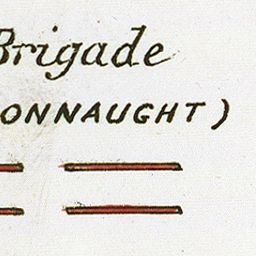 Brigade
ONNAUGHT)